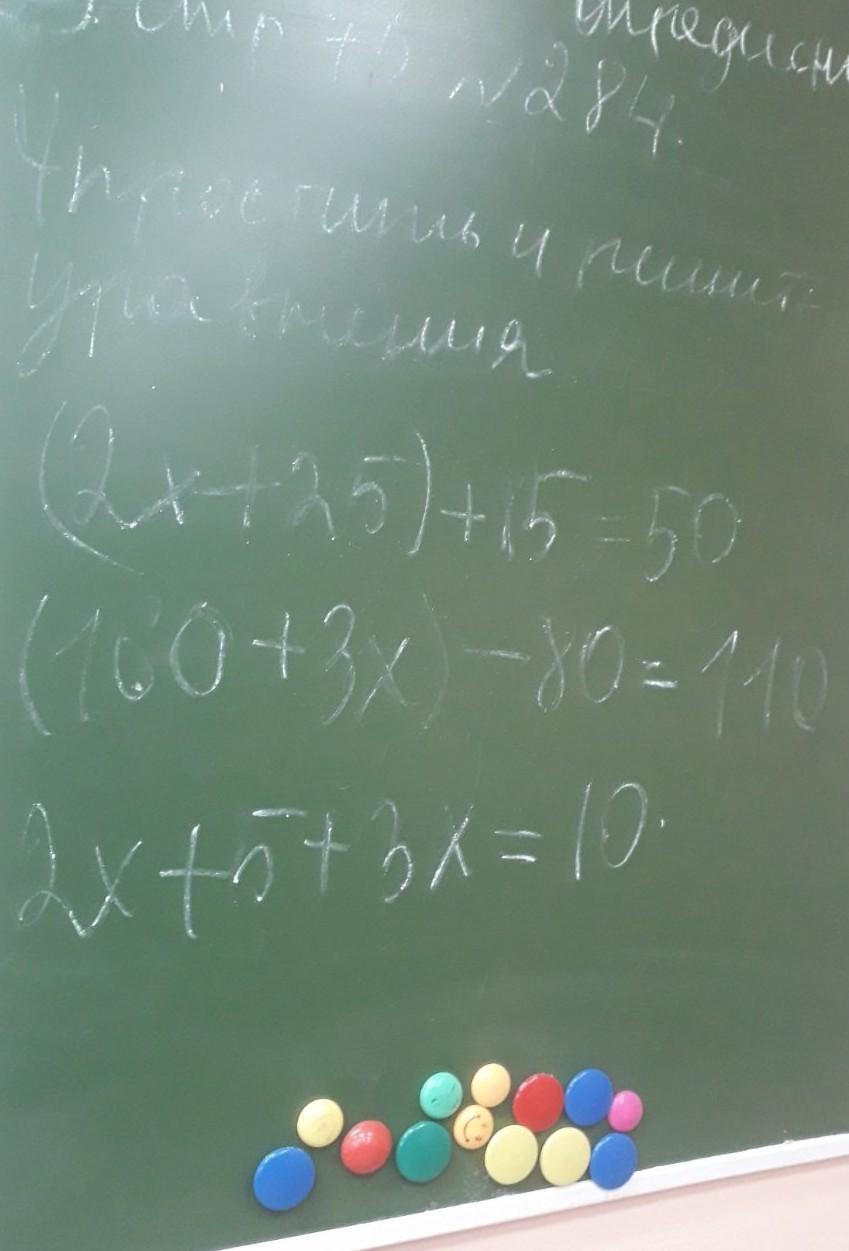 №284.
Упростить и решит
уравнения
(2x+25)+15=50
(100+3x)-80=110
2x+5+3x=10.